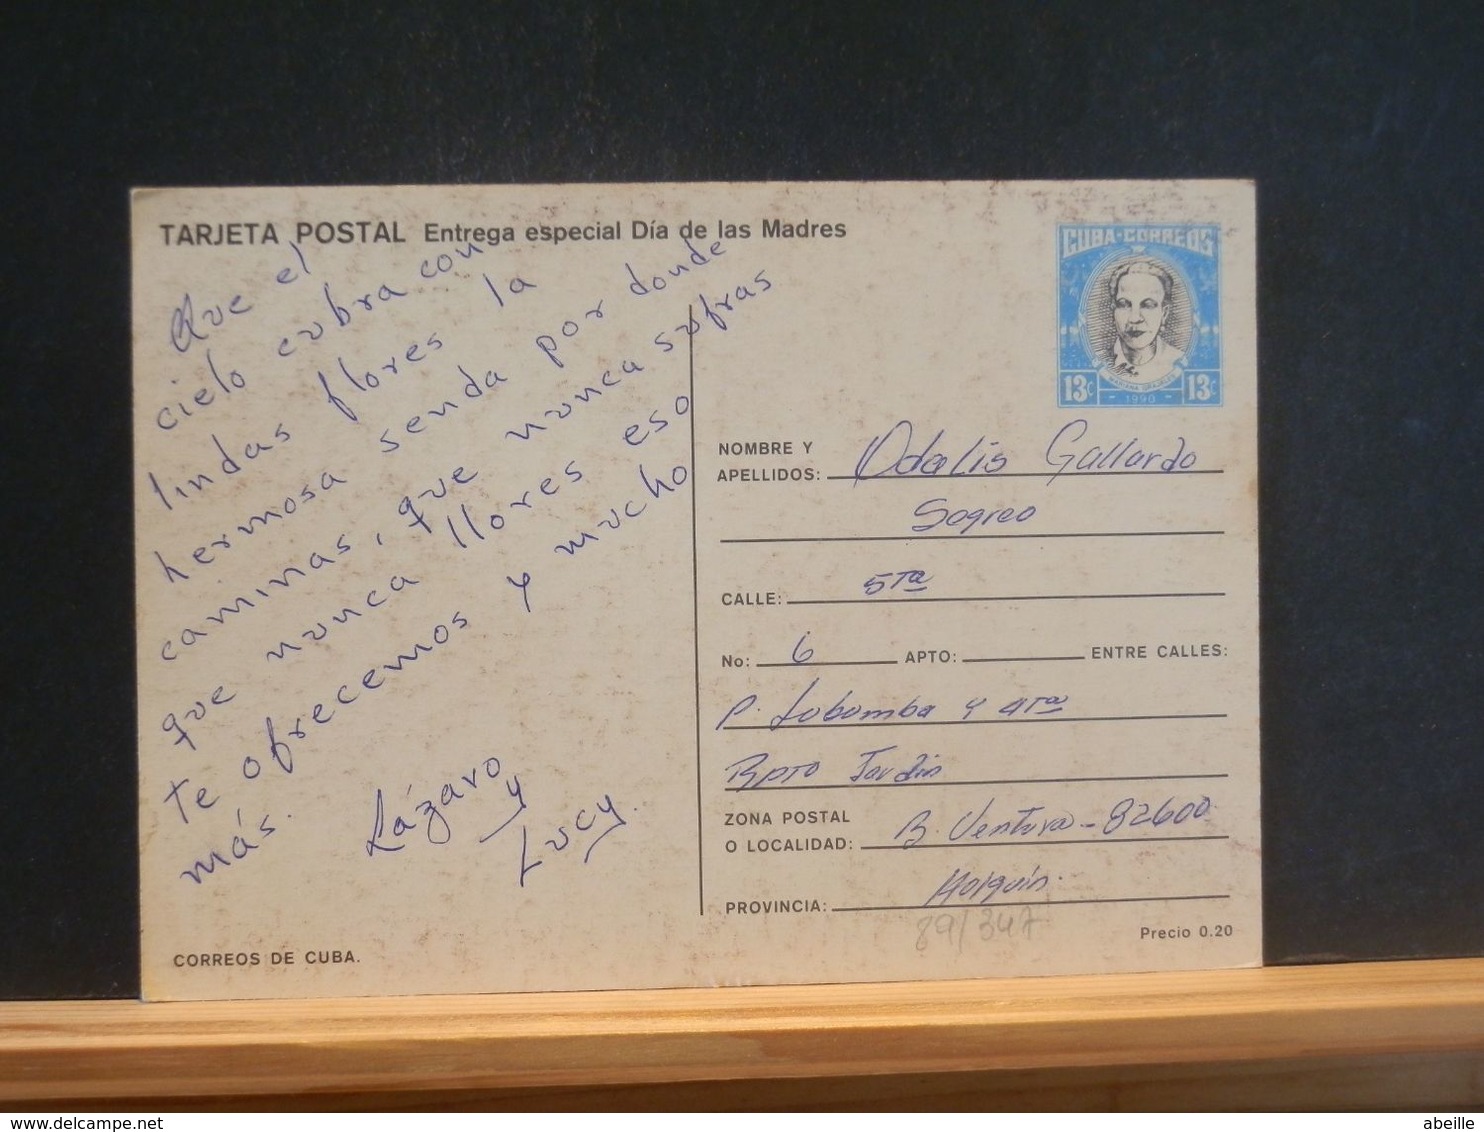 TARJETA POSTAL Entrega especial Día de las Madres
Que el
cielo cubra con
lindas flores la
hermosa senda por donde
caminas, que nunca sufras
que nunca llores eso
te ofrecemos y mucho
más.
Lázaro
y
Lucy.
CORREOS DE CUBA.
CUBA·CORREOS
MARIANA GRAJALES
13c - 1990 - 13c
NOMBRE Y
APELLIDOS: Odalis Gallardo
Sogreo
CALLE: 5ta
No: 6 APTO: ENTRE CALLES:
P. Lobomba y 4ta
Rpto Jardin
ZONA POSTAL
O LOCALIDAD: B. Ventura - 82600
PROVINCIA: Holguín.
89/347
Precio 0.20
delcampe.net
abeille